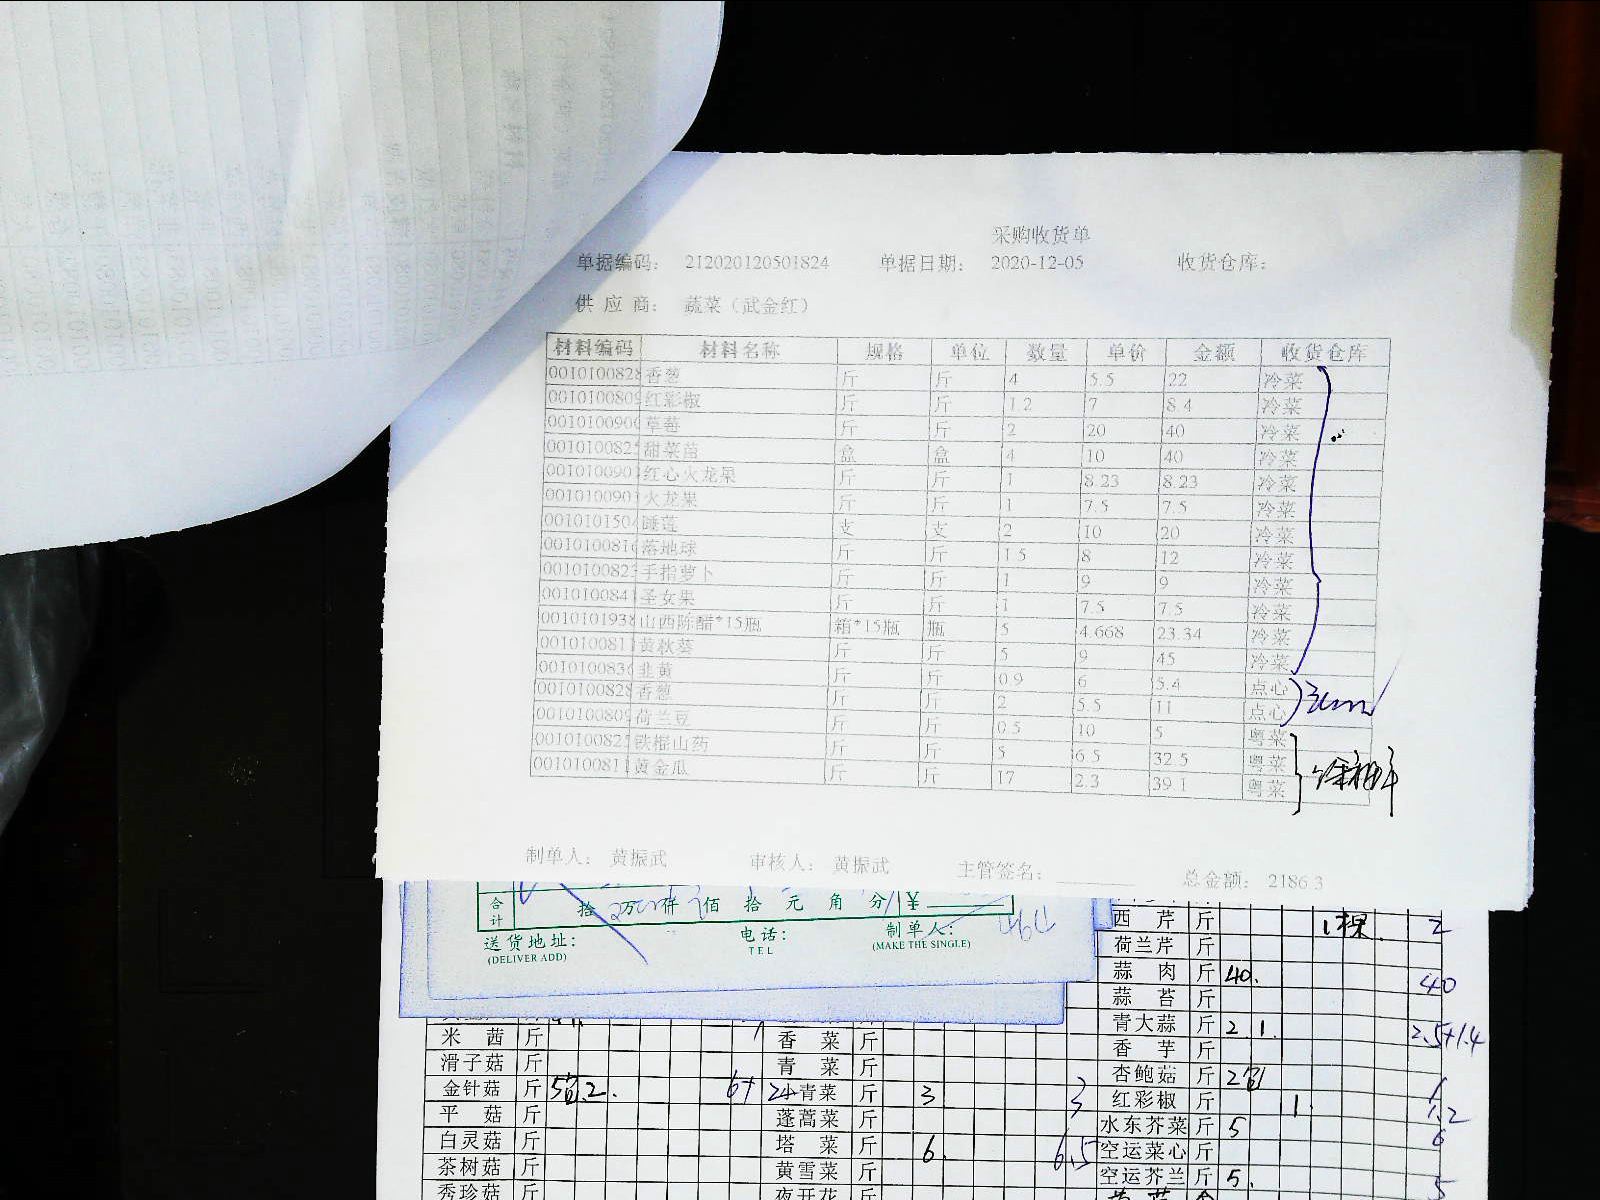 采购收货单
单据编码： 212020120501824 单据日期： 2020-12-05 收货仓库：
供 应 商： 蔬菜（武金红）
材料编码 材料名称 规格 单位 数量 单价 金额 收货仓库
0010100828 香葱 斤 斤 4 5.5 22 冷菜
0010100809 红彩椒 斤 斤 1.2 7 8.4 冷菜
001010090 草莓 斤 斤 2 20 40 冷菜
001010082 甜菜苗 盒 盒 4 10 40 冷菜
001010090 红心火龙果 斤 斤 1 8.23 8.23 冷菜
001010090 火龙果 斤 斤 1 7.5 7.5 冷菜
001010150 睡莲 支 支 2 10 20 冷菜
001010081 落地球 斤 斤 1.5 8 12 冷菜
001010082 手指萝卜 斤 斤 1 9 9 冷菜
001010084 圣女果 斤 斤 1 7.5 7.5 冷菜
0010101938 山西陈醋*15瓶 箱*15瓶 瓶 5 4.668 23.34 冷菜
001010081 黄秋葵 斤 斤 5 9 45 冷菜
001010083 韭黄 斤 斤 0.9 6 5.4 点心
0010100828 香葱 斤 斤 2 5.5 11 点心
0010100809 荷兰豆 斤 斤 0.5 10 5 粤菜
001010082 铁棍山药 斤 斤 5 6.5 32.5 粤菜
001010081 黄金瓜 斤 斤 17 2.3 39.1 粤菜
制单人： 黄振武 审核人： 黄振武 主管签名： 总金额： 2186.3
合计 拾 万 仟 佰 拾 元 角 分 ¥
送货地址： 电话： 制单人：
(DELIVER ADD) TEL (MAKE THE SINGLE)
西 芹 斤 1棵. 2
荷兰芹 斤
蒜 肉 斤 40. 40
蒜 苔 斤
青大蒜 斤 2 1. 2.5+1.4
香 芋 斤
杏鲍菇 斤
红彩椒 斤 1. 1.2
水东芥菜 斤 5 6
空运菜心 斤
空运芥兰 斤 5. 5
米 茜 斤 香 菜 斤
滑子菇 斤 青 菜 斤
金针菇 斤 小青菜 斤 3 3
平 菇 斤 蓬蒿菜 斤
白灵菇 斤 塔 菜 斤 6. 6.5
茶树菇 斤 黄雪菜 斤
秀珍菇 斤 夜开花 斤